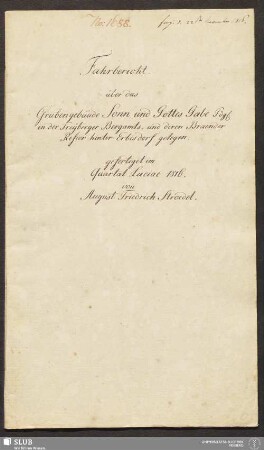 No: 1688.
Fahrbericht
über das
Grubengebäude Sonn und Gottes Gabe Fdgb.
in der Freyberger Bergamts, und deren Braender
Refier hinter Erbisdorf gelegen.
gefertiget im
Quartal Luciae 1816.
von
August Friedrich Stroedel.
SLUB